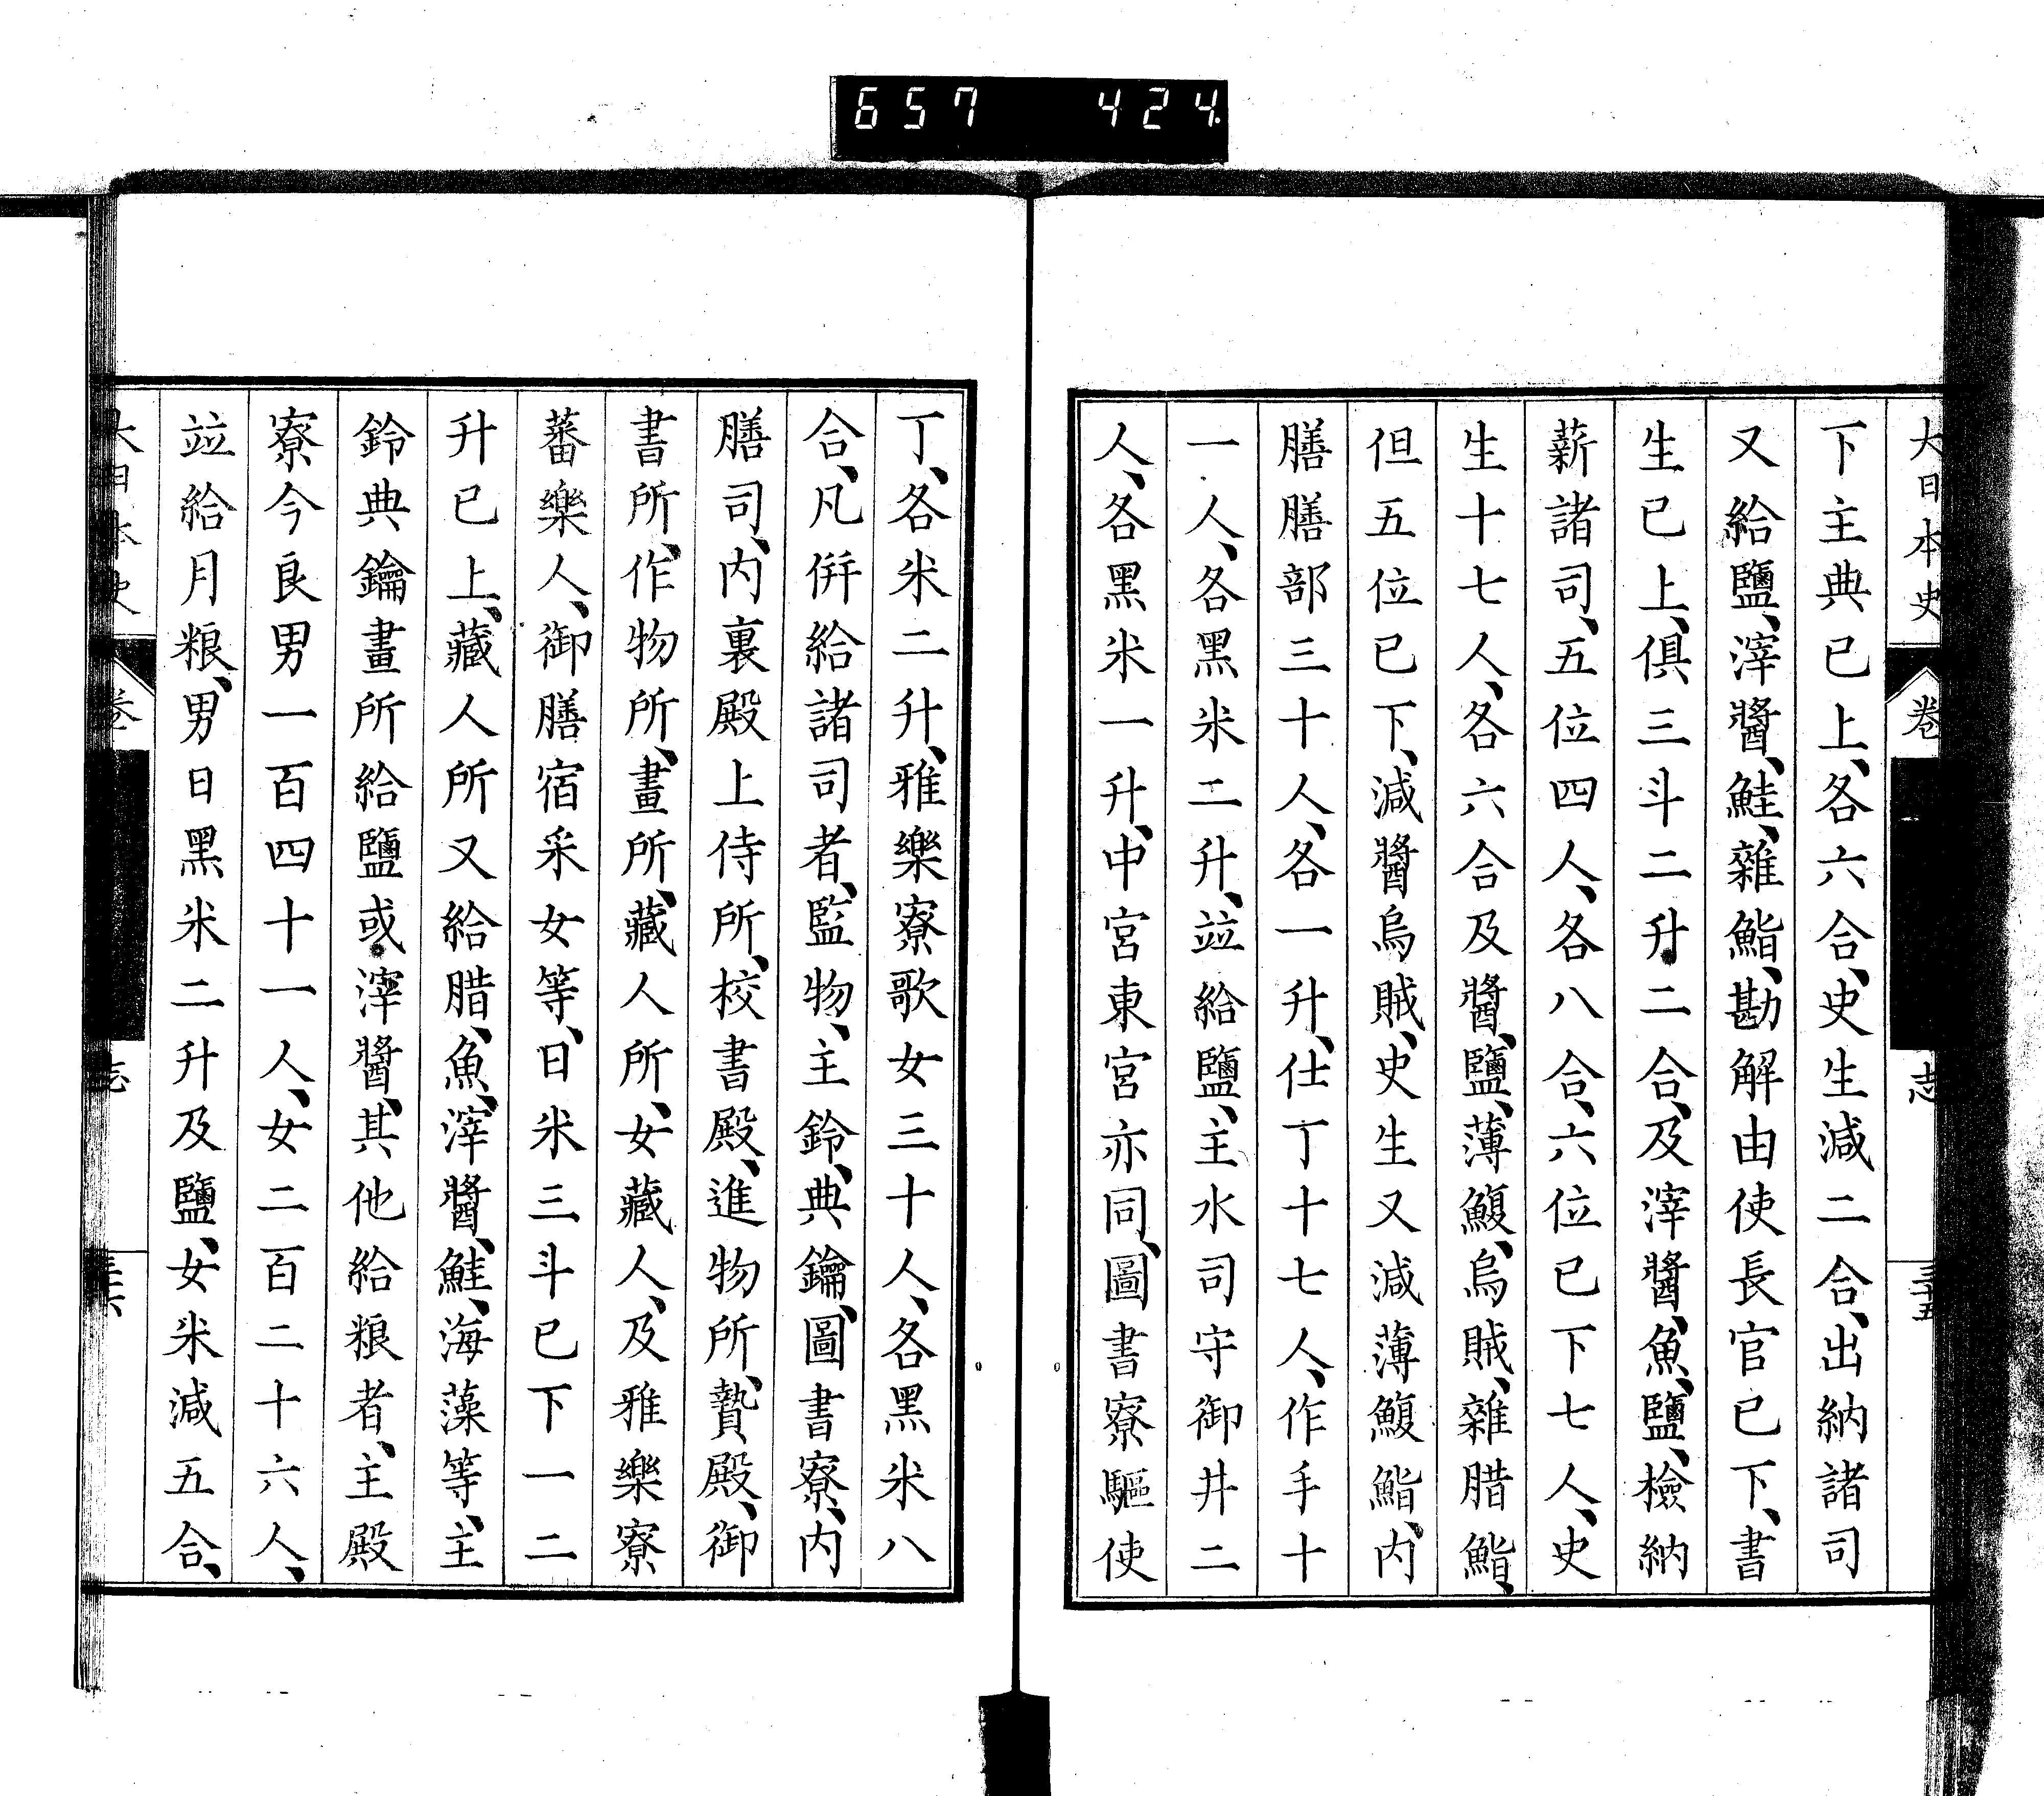 657 424
大日本史 卷 志 三十五
下主典已上、各六合、史生減二合、出納諸司
又給鹽、滓醬、鮭、雜鮨、勘解由使長官已下、書
生已上、俱三斗二升二合、及滓醬、魚、鹽、檢納
薪諸司、五位四人、各八合、六位已下七人、史
生十七人、各六合及醬、鹽、薄鰒、烏賊、雜腊鮨、
但五位已下、減醬烏賊、史生又減薄鰒鮨、內
膳膳部三十人、各一升、仕丁十七人、作手十
一人、各黑米二升、竝給鹽、主水司守御井二
人、各黑米一升、中宮東宮亦同、圖書寮驅使
丁、各米二升、雅樂寮歌女三十人、各黑米八
合、凡倂給諸司者、監物、主鈴、典鑰、圖書寮、內
膳司、內裏殿上侍所、校書殿、進物所、贄殿、御
書所、作物所、畫所、藏人所、女藏人、及雅樂寮
蕃樂人、御膳宿采女等、日米三斗已下一二
升已上、藏人所又給腊、魚、滓醬、鮭、海藻等、主
鈴典鑰畫所給鹽或滓醬、其他給粮者、主殿
寮今良男一百四十一人、女二百二十六人、
竝給月粮、男日黑米二升及鹽、女米減五合、
大日本史 卷 志 三十六